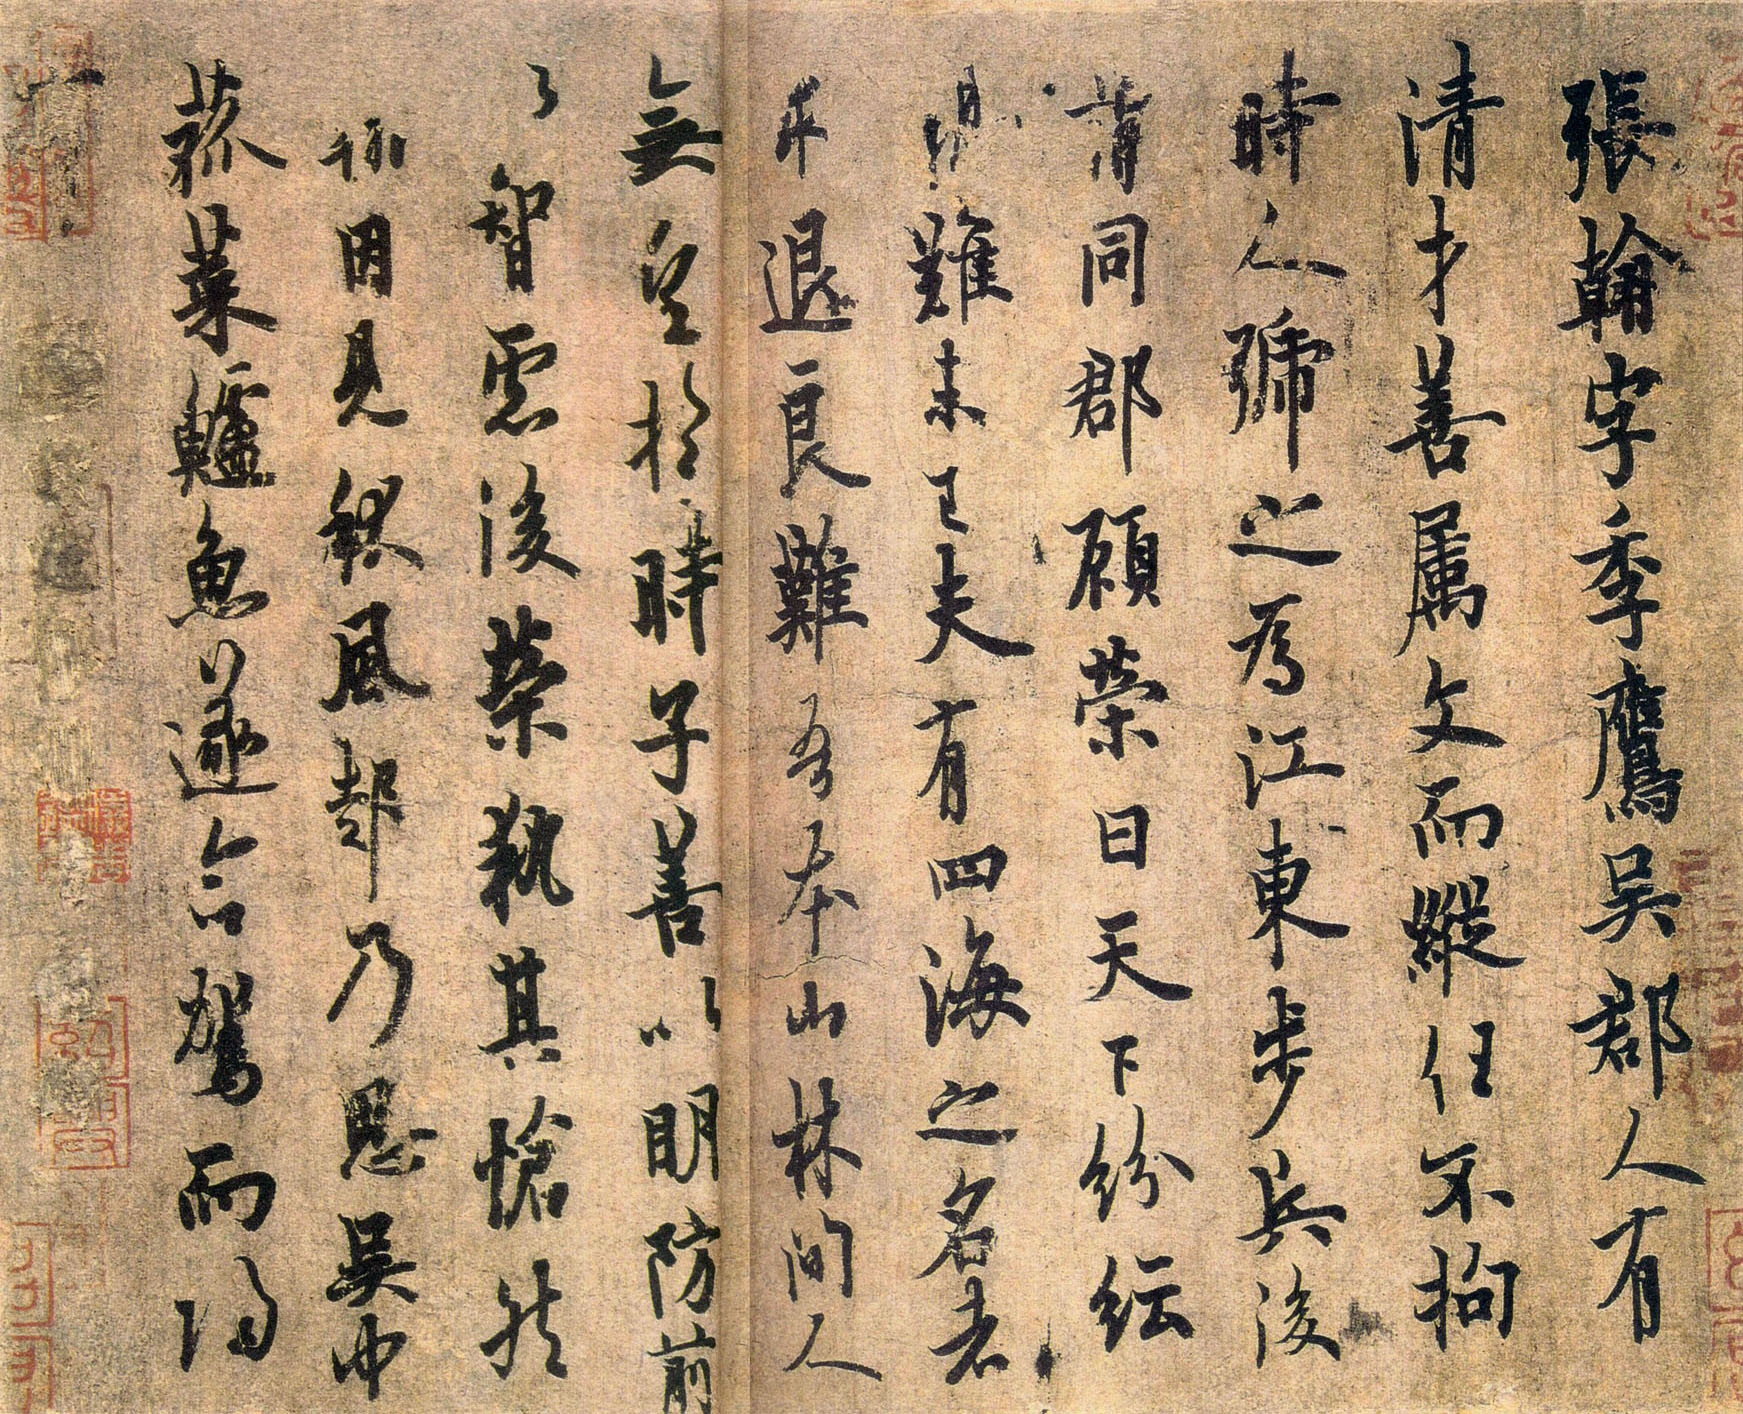 張翰字季鷹吳郡人有
清才善属文而縱任不拘
時人号之為江東步兵後
謂同郡顧榮曰天下紛紜
難未已夫有四海之名者
求退良難吾本山林間人
無望於時子善以明防前
以智慮後榮執其愴然
翰因見秋風起乃思吳中
菰菜鱸魚遂命駕而歸